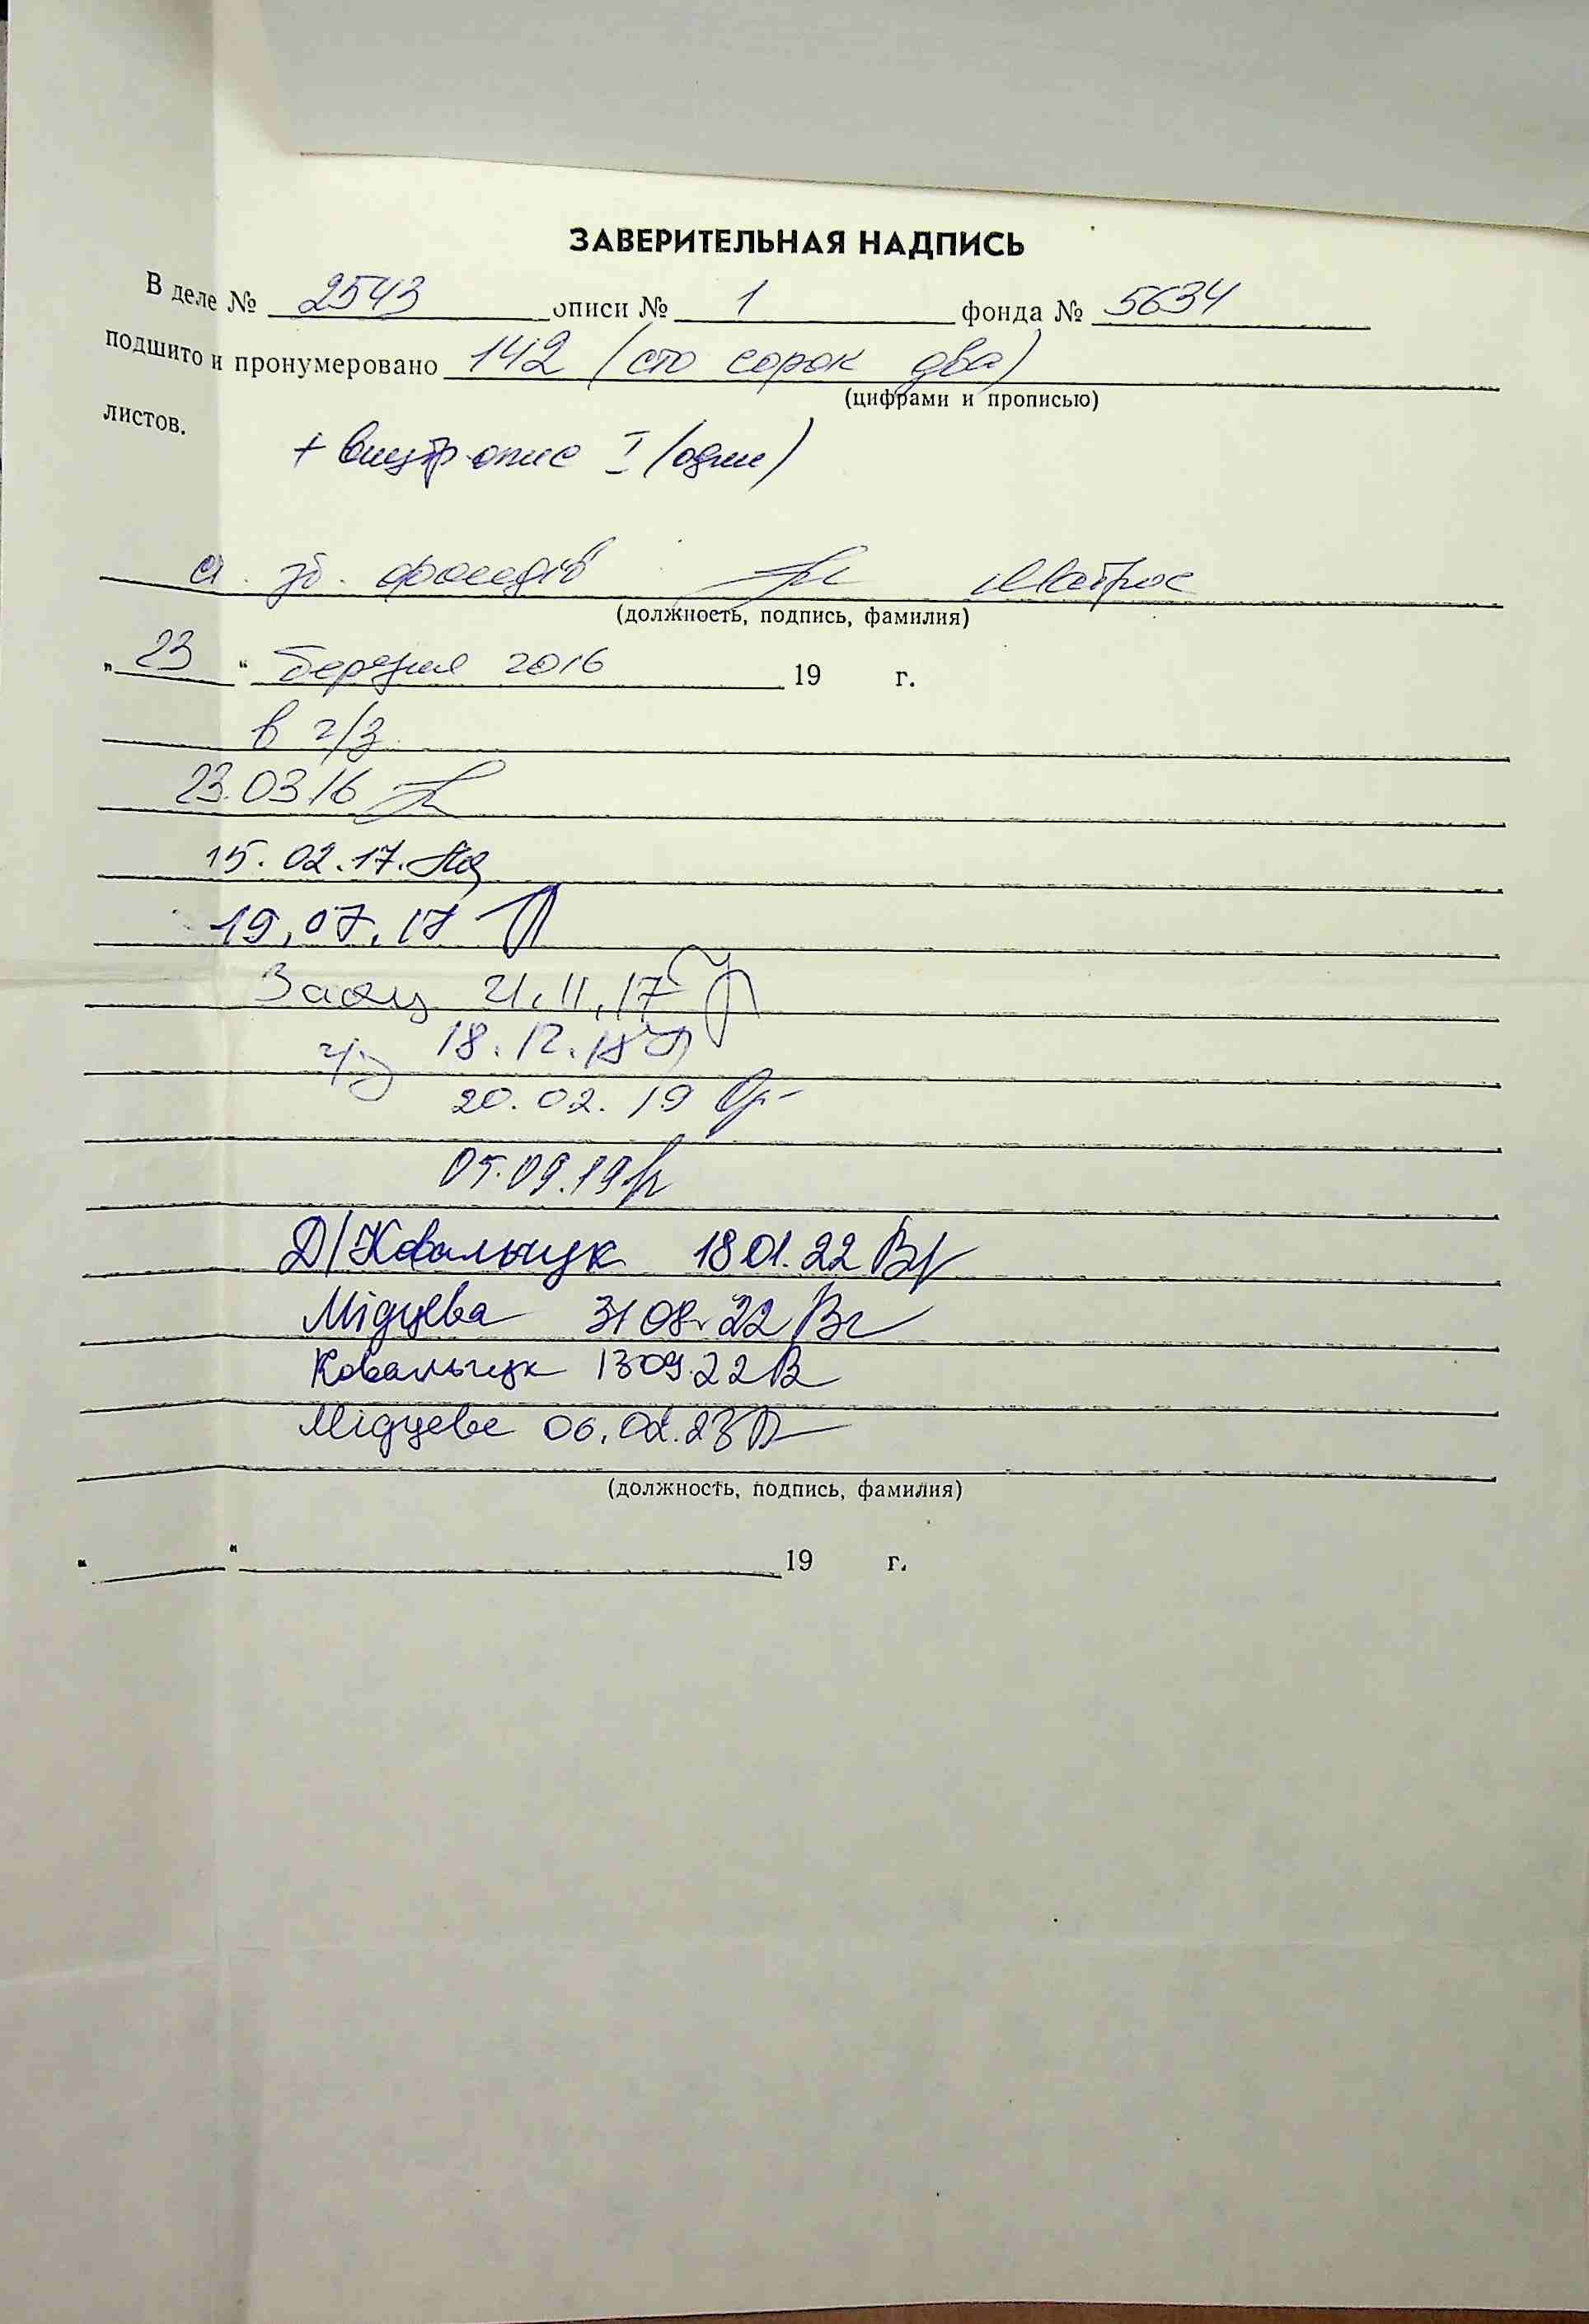 ЗАВЕРИТЕЛЬНАЯ НАДПИСЬ
В деле № 2543 описи № 1 фонда № 5634
подшито и пронумеровано 142 (сто сорок два)
(цифрами и прописью)
листов.
+ внутр опис I (один)
зб. фондів Матрос
(должность, подпись, фамилия)
„ 23 “ березня 2016 19 г.
в ч/з
23.03.16
15.02.17.
19.07.17
21.11.17
18.12.18
20.02.19
05.09.19
Д/Ковальчук 18.01.22
Мідцева 31 08. 22
Ковальчук 13 09. 22
Мідцева 06.02.23
(должность, подпись, фамилия)
„ “ 19 г.